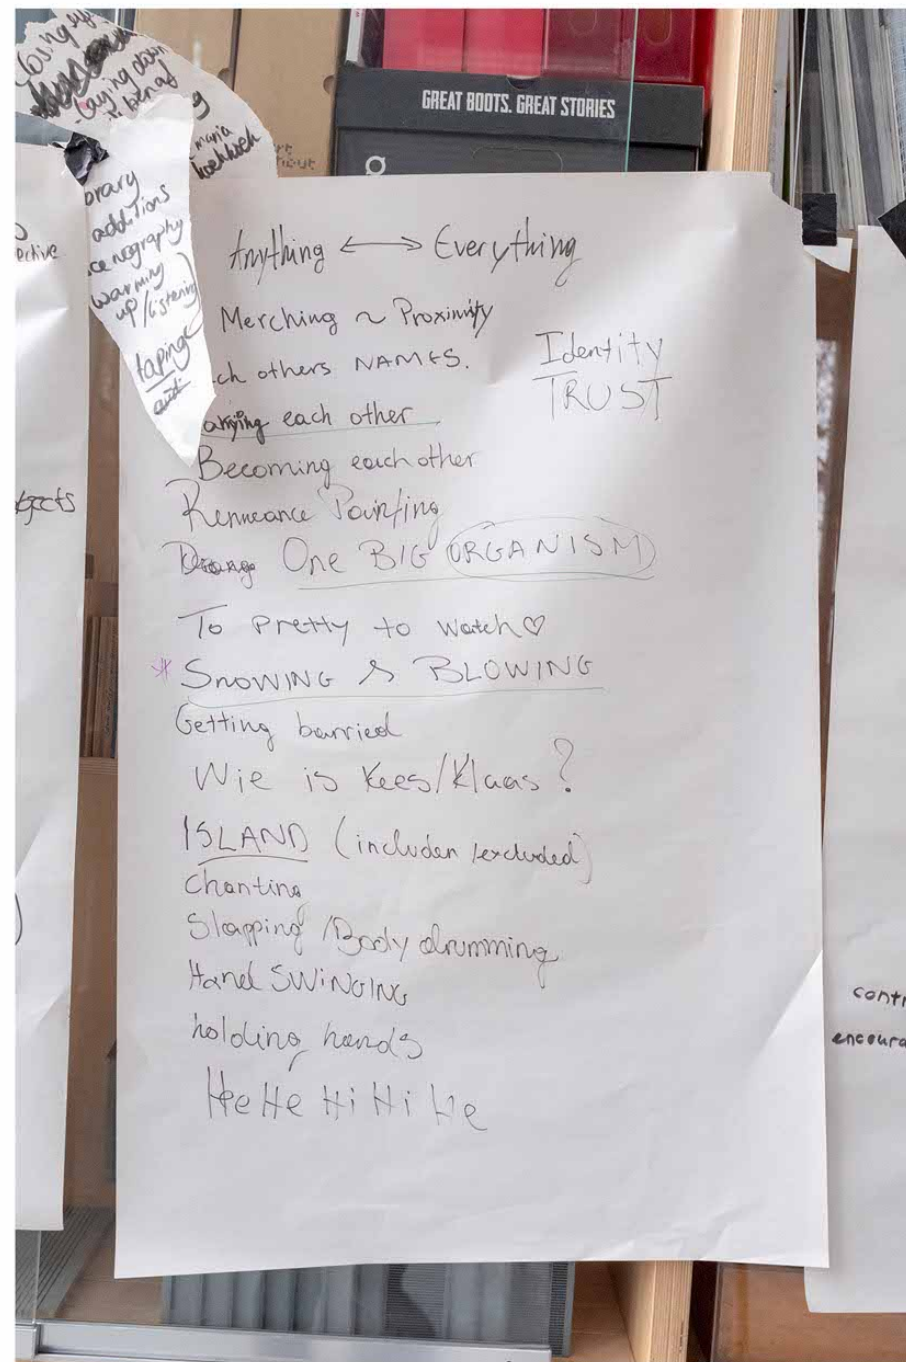 Laying down
maria
GREAT BOOTS. GREAT STORIES
brary
additions
cenography
warming
up/listening
taping
ective
Anything ↔ Everything
Merching ~ Proximity
ch others NAMES.
Identity
TRUST
arrying each other
Becoming each other
Renneance Painting
One BIG ORGANISM
To Pretty to watch ♡
* SNOWING & BLOWING
Getting barried
Wie is Kees/Klaas?
ISLAND (includen/excluded)
Chanting
Slapping/Body drumming
Hand SWINGING
holding hands
HeHe Hi Hi He
bjects
contr
encoura